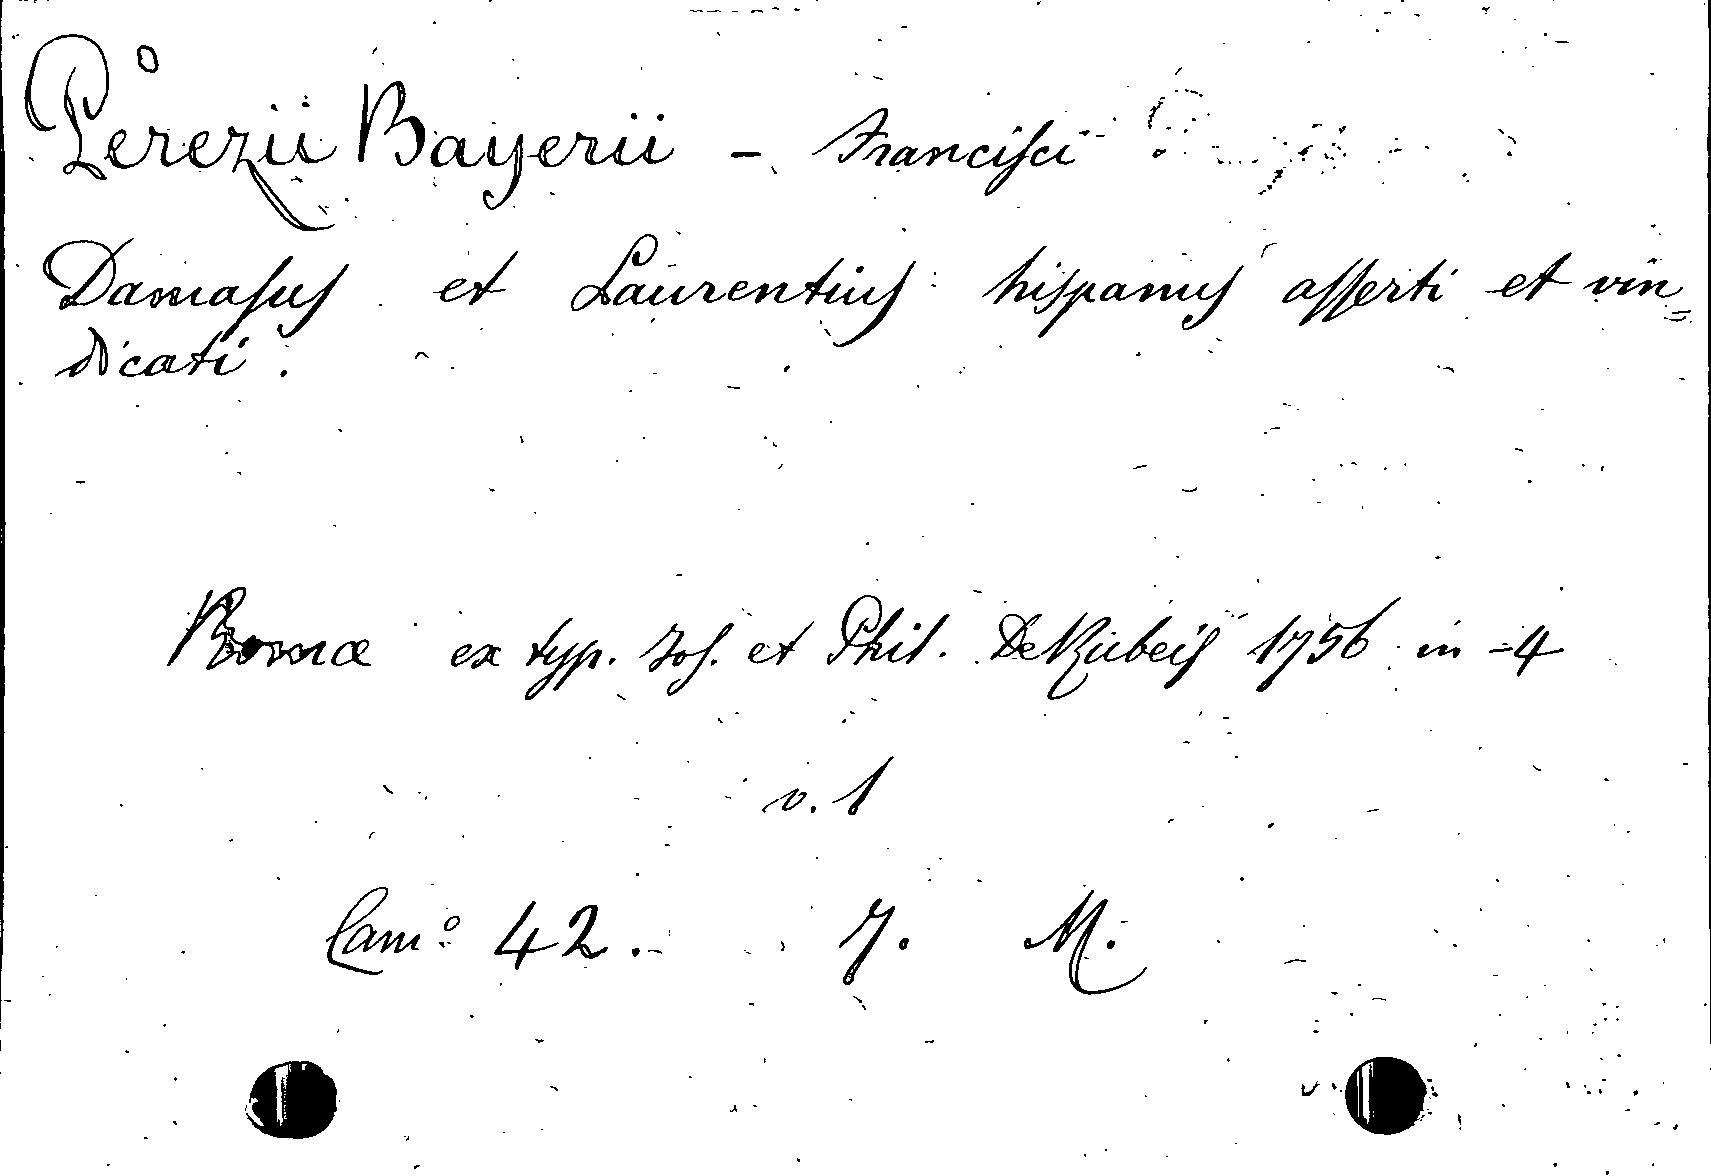 Perezii Bayerii - Francisci
Damasus et Laurentius hispanus asserti et vin=
dicati.
Romæ ex typ. Jos. et Phil. De Rubeis 1756 in-4
v. 1
Cam° 42. 7. M.